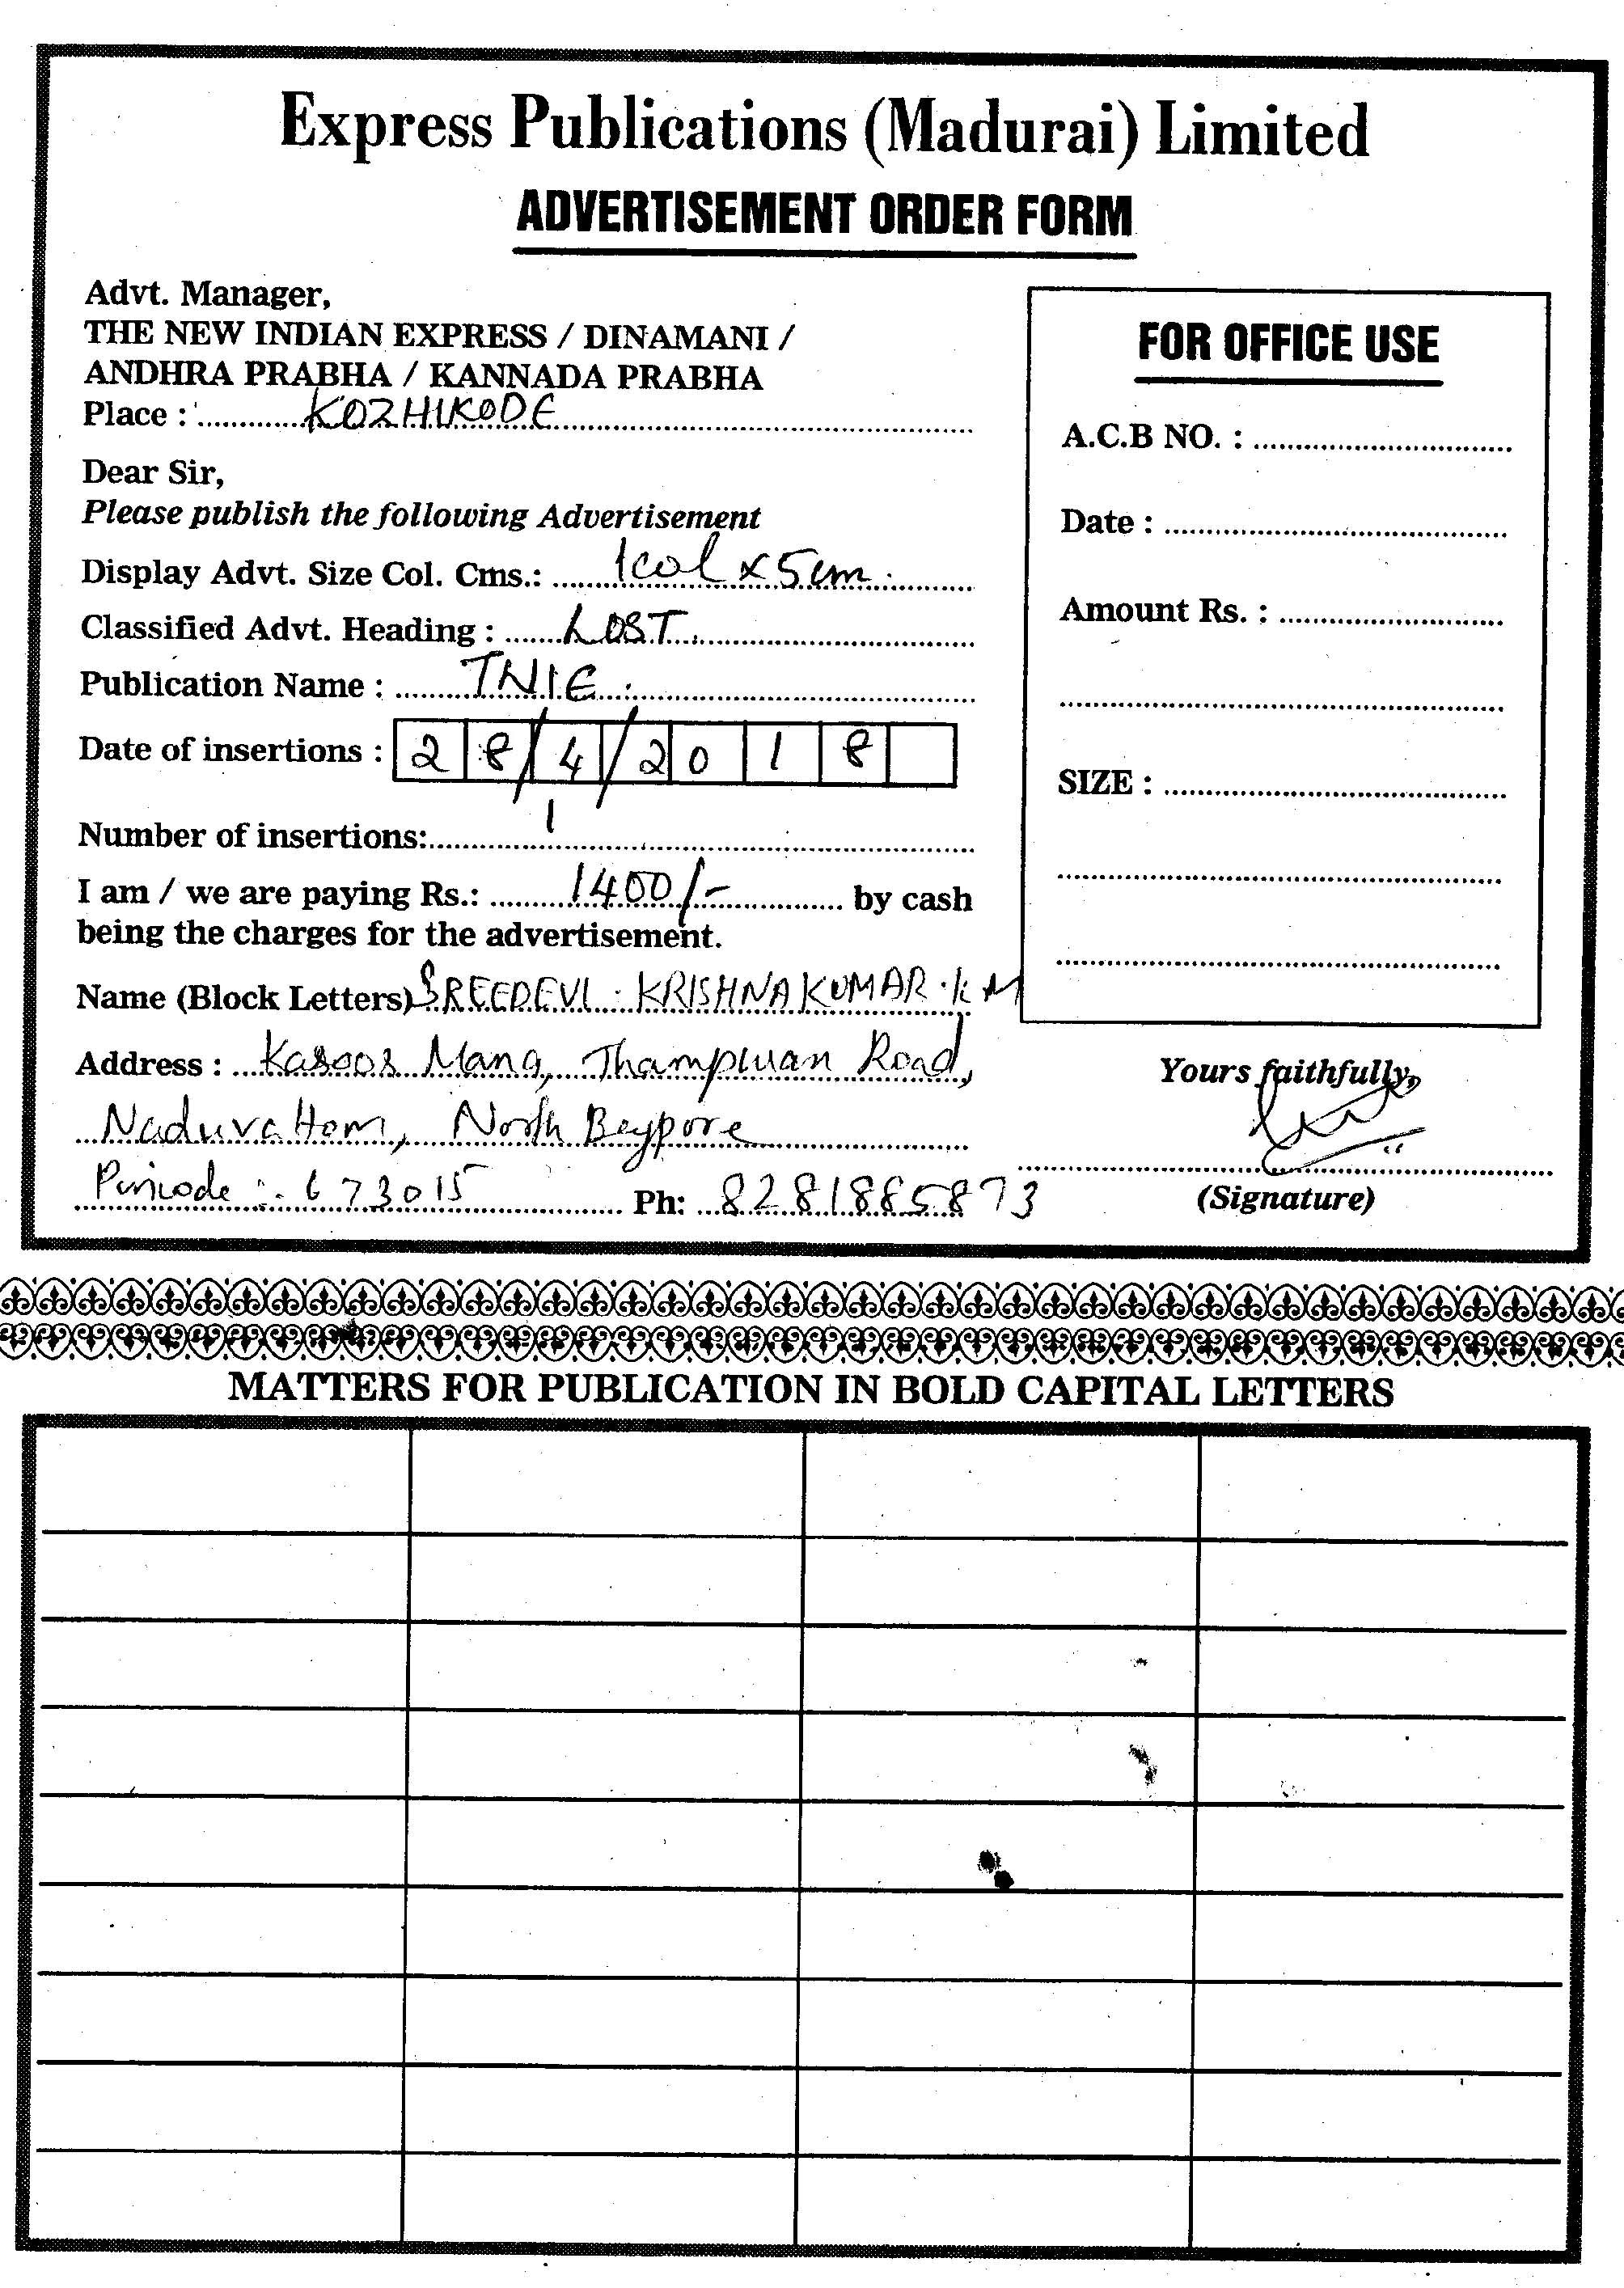 Express Publications (Madurai) Limited
ADVERTISEMENT ORDER FORM
Advt. Manager,
THE NEW INDIAN EXPRESS / DINAMANI /
ANDHRA PRABHA / KANNADA PRABHA
Place : KOZHIKODE
Dear Sir,
Please publish the following Advertisement
Display Advt. Size Col. Cms.: 1col x 5cm.
Classified Advt. Heading : LOST.
Publication Name : TNIE.
Date of insertions : 28/4/2018
Number of insertions: 1
I am / we are paying Rs.: 1400/- by cash
being the charges for the advertisement.
Name (Block Letters) SREEDEVI. KRISHNAKUMAR. K M
Address : Mana, Road,
Naduvattom, North Beypore
Pincode :- 673015 Ph: 8281885873
FOR OFFICE USE
A.C.B NO. :
Date :
Amount Rs. :
SIZE :
Yours faithfully,
(Signature)
MATTERS FOR PUBLICATION IN BOLD CAPITAL LETTERS